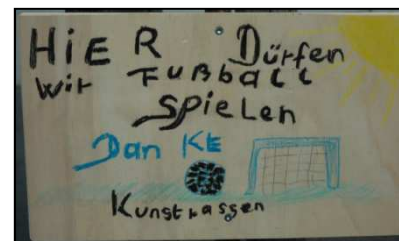 HiER Dürfen
wir FußbaLL
spieLen
DanKE
Kunstrassen